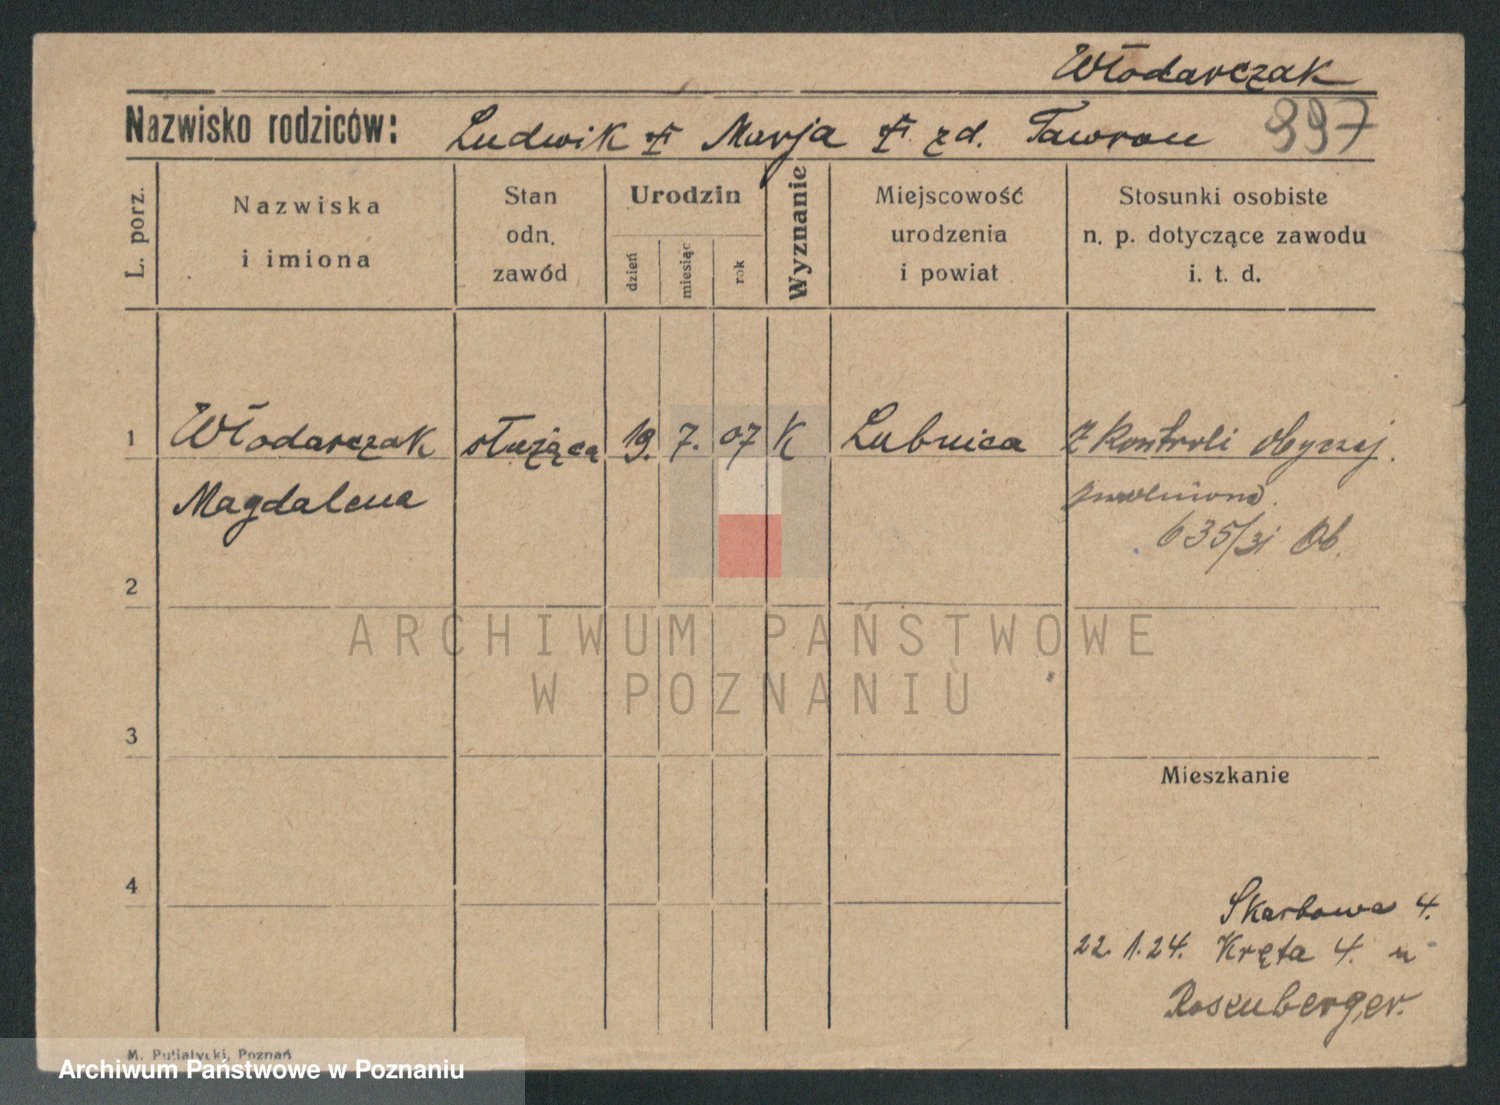 Włodarczak
Nazwisko rodziców: Ludwik Marja zd. Tawron 997
L. porz.
Nazwiska
i imiona
Stan
odn.
zawód
Urodzin
dzień
miesiąc
rok
Wyznanie
Miejscowość
urodzenia
i powiat
Stosunki osobiste
n. p. dotyczące zawodu
i. t. d.
1 Włodarczak służąca 19. 7. 07 K Lubnica Z kontroli obyczaj.
Magdalena zwolniona.
635/31 Ob.
2
ARCHIWUM PAŃSTWOWE
W POZNANIU
3
Mieszkanie
4
Skarbowa 4.
22. 1. 24. Kręta 4. u
Rosenberger.
M. Putiatycki, Poznań
Archiwum Państwowe w Poznaniu